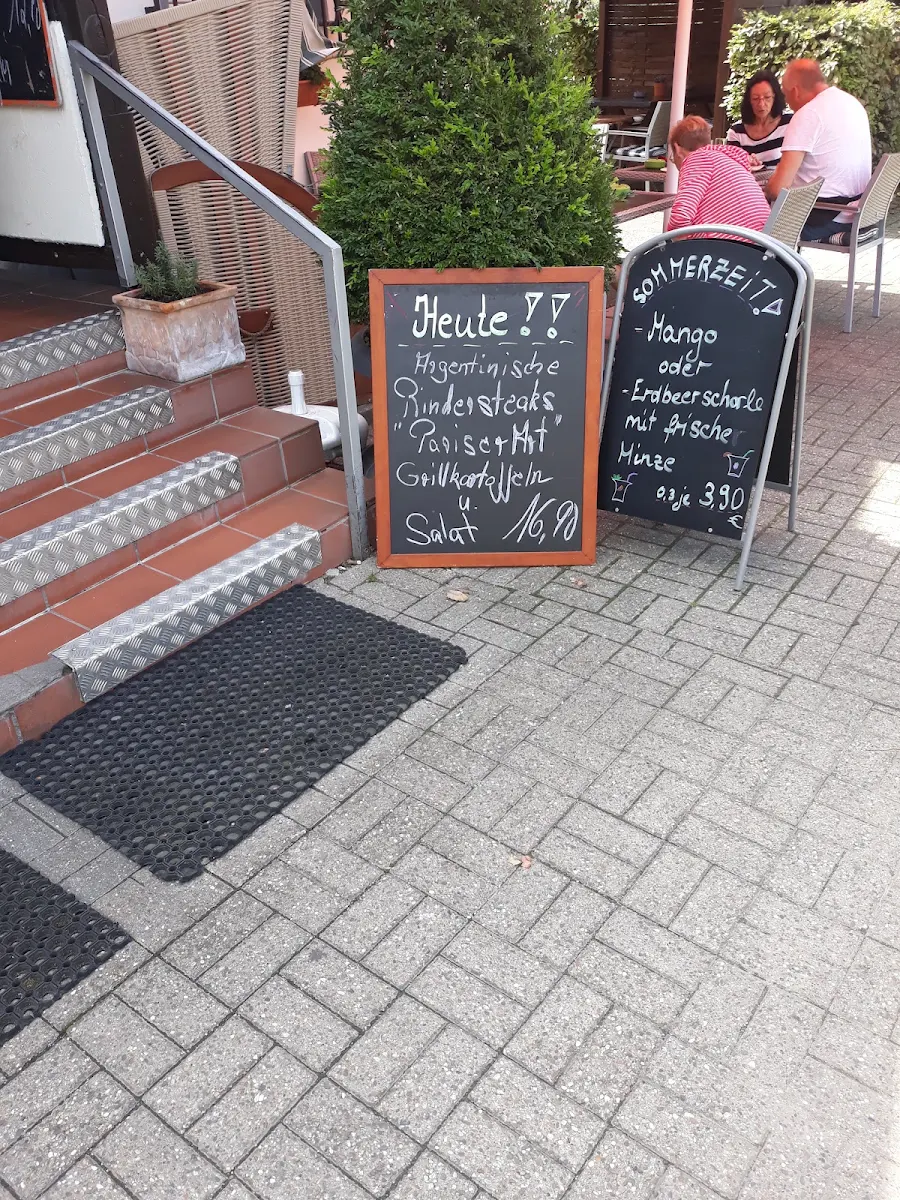 Heute!!
Argentinische
Rindersteaks
"Pariser Art"
Grillkartoffeln
u.
Salat 16,90
SOMMERZEIT!
- Mango
oder
- Erdbeerschorle
mit frischer
Minze
0,3 je 3,90
€